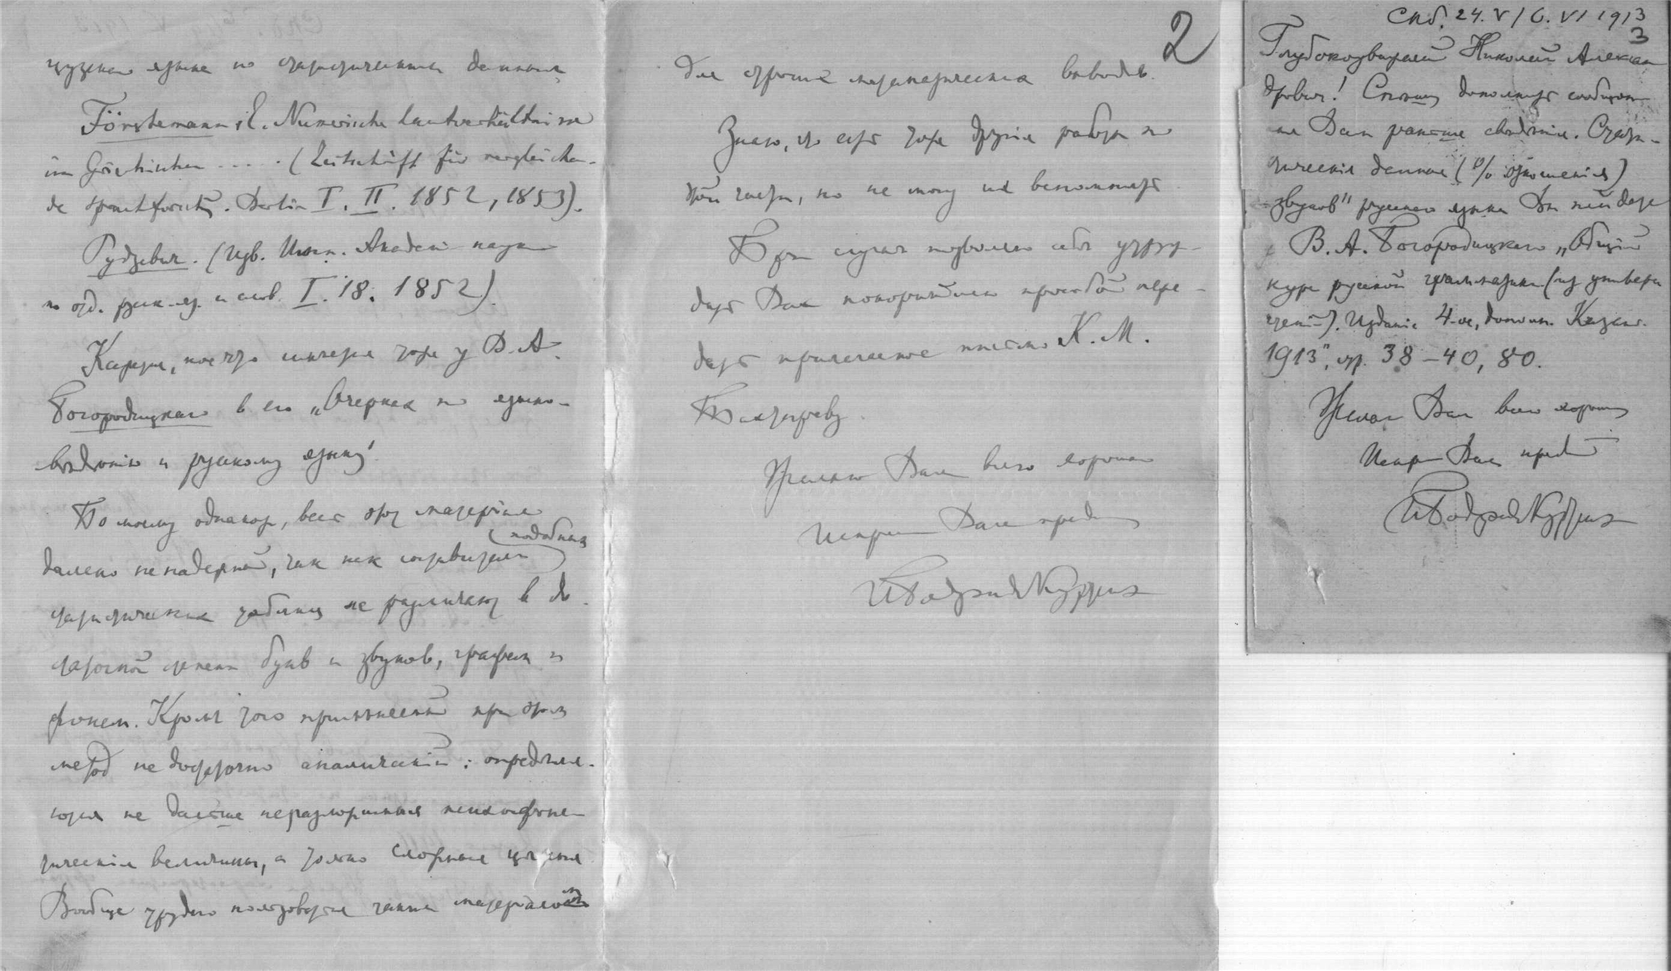 языка по статистическим данным
Förstemann, E. Numerische Lautverhältnisse
im Griechischen . . . . (Zeitschrift für vergleichen-
de Sprachforsch. Berlin I. II. 1852, 1853).
(Изв. Имп. Академ. наук
по отд. русск. яз. и слов. I. 18. 1852).
Кажется, кое что имеется тоже у В. А.
Богородицкаго в его „Очерках по языко-
ведению и русскому языку".
По моему однакож, весь этот материал
подобных
далеко не надежный, так как составители
статистических таблиц не различают в до-
статочной степени букв и звуков, графем и
фонем. Кроме того применяемый при этом
метод не достаточно аналитический: определя-
ются не дальше неразложимыя психофоне-
тическия величины, а только сложныя целыя
Вообще трудно пользоваться таким материалом
2
для строгих математических выводов.
Знаю, что есть тоже другия работы по
этой части, но не могу их вспомнить
При случае позволяю себе утру-
дить Вас покорнейшею просьбой пере-
дать прилагаемое письмо К. М.
Желаю Вам всего хорошаго
Искренно Вам пред
ИБодуэндеКуртенэ
Спб. 24. V / 6. VI 1913
3
Глубокоуважаемый Николай Алексан
дрович! Спешу дополнить сообщен-
ныя Вам раньше сведения. Стати-
стическия данныя (% отношения)
„звуков" русскаго языка Вы найдете
В. А. Богородицкаго „Общий
курс русской грамматики (из универси
чтений). Издание 4-ое, дополн. Казань.
1913", стр. 38 – 40, 80.
Желаю Вам всего хорошаго
Искр Вам пред
ИБодуэндеКуртенэ